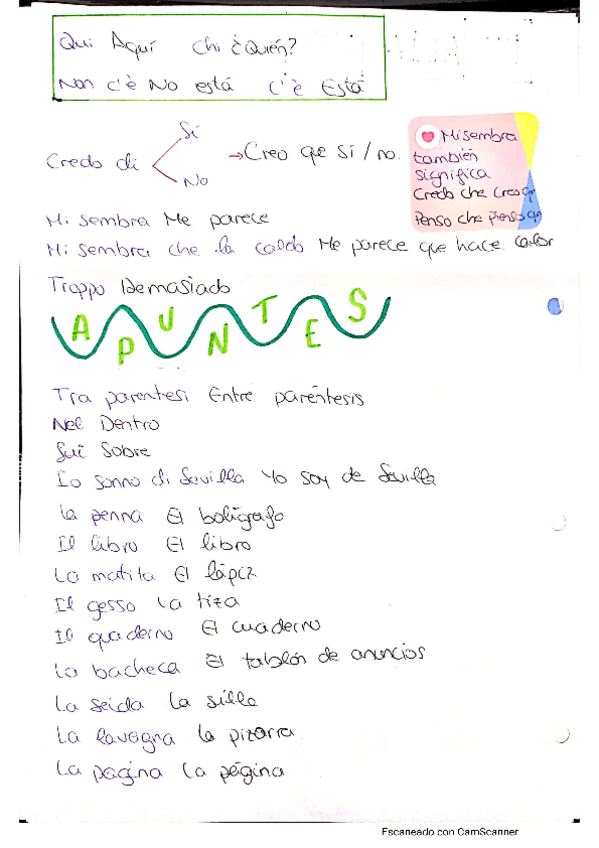 Qui Aquí Chi ¿Quién?
Non c'è No está C'è Está
Credo di
Sí
No
→ Creo que sí / no.
Mi sembra
también
significa
Credo che Creo q
Penso che Pienso q
Mi sembra Me parece
Mi sembra che la caldo Me parece que hace calor
Troppo Demasiado
APUNTES
Tra parentesi Entre paréntesis
Nel Dentro
Sul Sobre
Io sonno di Sevilla Yo soy de Sevilla
La penna El bolígrafo
Il libro El libro
La matita El lápiz
Il gesso La tiza
Il quaderno El cuaderno
La bacheca El tablón de anuncios
La seida La silla
La lavagna La pizarra
La pagina La página
Escaneado con CamScanner